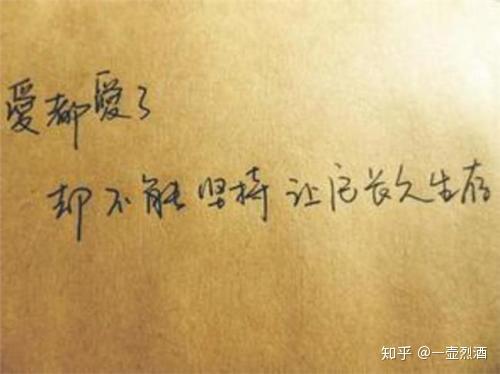 愛都愛了
却不能坚持让它长久生存
知乎 @一壶烈酒